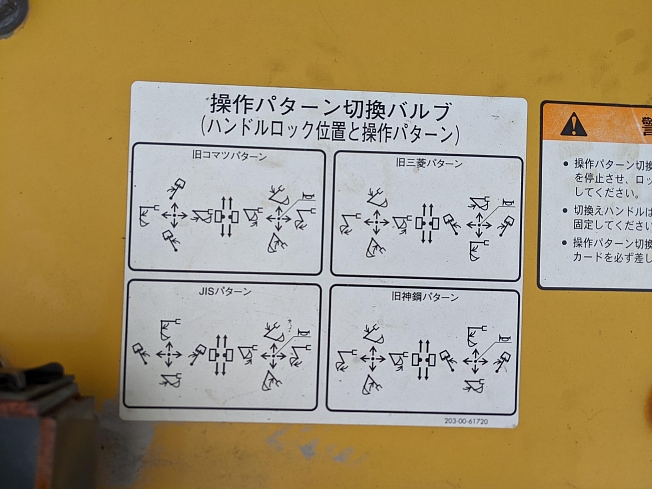 操作パターン切換バルブ
(ハンドルロック位置と操作パターン)
旧コマツパターン
旧三菱パターン
JISパターン
旧神鋼パターン
203-00-61720
警
• 操作パターン切換
を停止させ、ロッ
してください。
• 切換えハンドルは
固定してください
• 操作パターン切換
カードを必ず差し